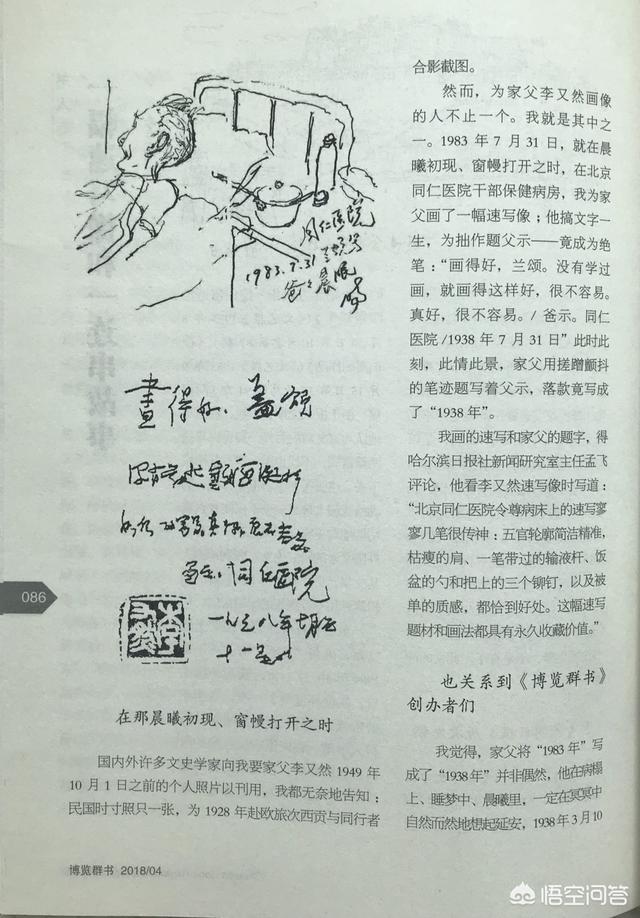 同仁医院
1983.7.31
爸々晨眠
畫得好、蓝颂
同仁医院
一九三八年七月三
十一日
李又然
086
在那晨曦初现、窗幔打开之时
国内外许多文史学家向我要家父李又然 1949 年
10 月 1 日之前的个人照片以刊用，我都无奈地告知：
民国时寸照只一张，为 1928 年赴欧旅次西贡与同行者
合影截图。
然而，为家父李又然画像
的人不止一个。我就是其中之
一。1983 年 7 月 31 日，就在晨
曦初现、窗幔打开之时，在北京
同仁医院干部保健病房，我为家
父画了一幅速写像；他搞文字一
生，为拙作题父示——竟成为绝
笔：“画得好，兰颂。没有学过
画，就画得这样好，很不容易。
真好，很不容易。/ 爸示。同仁
医院 /1938 年 7 月 31 日”此时此
刻，此情此景，家父用搓蹭颤抖
的笔迹题写着父示，落款竟写成
了“1938 年”。
我画的速写和家父的题字，得
哈尔滨日报社新闻研究室主任孟飞
评论，他看李又然速写像时写道：
“北京同仁医院令尊病床上的速写寥
寥几笔很传神：五官轮廓简洁精准，
枯瘦的肩、一笔带过的输液杆、饭
盆的勺和把上的三个铆钉，以及被
单的质感，都恰到好处。这幅速写
题材和画法都具有永久收藏价值。”
也关系到《博览群书》
创办者们
我觉得，家父将“1983 年”写
成了“1938 年”并非偶然，他在病榻
上、睡梦中、晨曦里，一定在冥冥中
自然而然地想起延安，1938 年 3 月 10
博览群书 2018/04
悟空问答